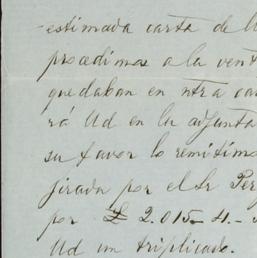 estimada carta de U
procedimos a la vent
quedaban en ntra ca
rá Ud en la adjunta
su favor lo remitimo
jirada por el Sr Per
por £ 2.015-4.-
Ud un triplicado.